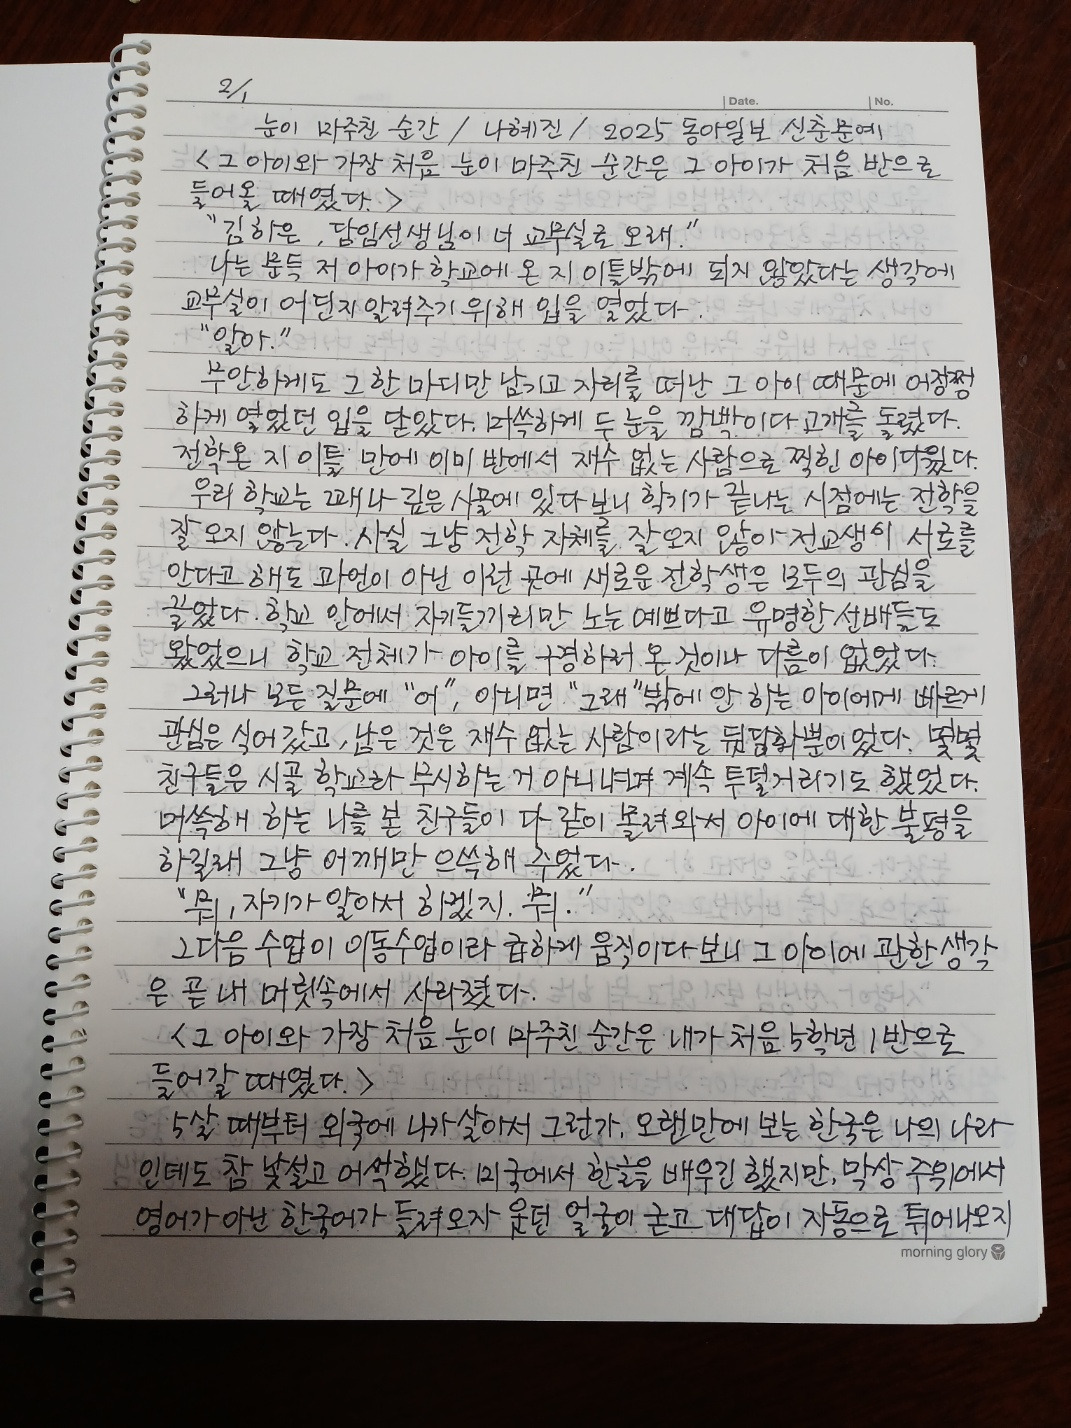 2/1
Date.
No.
눈이 마주친 순간 / 나혜진 / 2025 동아일보 신춘문예
<그 아이와 가장 처음 눈이 마주친 순간은 그 아이가 처음 반으로
들어올 때였다.>
"김하은, 담임선생님이 너 교무실로 오래."
나는 문득 저 아이가 학교에 온 지 이틀밖에 되지 않았다는 생각에
교무실이 어딘지 알려주기 위해 입을 열었다.
"알아."
무안하게도 그 한 마디만 남기고 자리를 떠난 그 아이 때문에 어정쩡
하게 열었던 입을 닫았다. 머쓱하게 두 눈을 깜빡이다 고개를 돌렸다.
전학온 지 이틀 만에 이미 반에서 재수 없는 사람으로 찍힌 아이다웠다.
우리 학교는 꽤나 깊은 시골에 있다 보니 학기가 끝나는 시점에는 전학을
잘 오지 않는다. 사실 그냥 전학 자체를 잘 오지 않아 전교생이 서로를
안다고 해도 과언이 아닌 이런 곳에 새로운 전학생은 모두의 관심을
끌었다. 학교 안에서 자기들끼리만 노는 예쁘다고 유명한 선배들도
왔었으니 학교 전체가 아이를 구경하러 온 것이나 다름이 없었다.
그러나 모든 질문에 "어", 아니면 "그래"밖에 안 하는 아이에게 빠르게
관심은 식어 갔고, 남은 것은 재수 없는 사람이라는 뒷담화뿐이었다. 몇몇
친구들은 시골 학교라 무시하는 거 아니냐며 계속 투덜거리기도 했었다.
머쓱해 하는 나를 본 친구들이 다 같이 몰려와서 아이에 대한 불평을
하길래 그냥 어깨만 으쓱해 주었다.
"뭐, 자기가 알아서 하겠지. 뭐."
그다음 수업이 이동수업이라 급하게 움직이다 보니 그 아이에 관한 생각
은 곧 내 머릿속에서 사라졌다.
<그 아이와 가장 처음 눈이 마주친 순간은 내가 처음 5학년 1반으로
들어갈 때였다.>
5살 때부터 외국에 나가살아서 그런가, 오랜만에 보는 한국은 나의 나라
인데도 참 낯설고 어색했다. 미국에서 한글을 배우긴 했지만, 막상 주위에서
영어가 아닌 한국어가 들려오자 웃던 얼굴이 굳고 대답이 자동으로 튀어나오지
morning glory